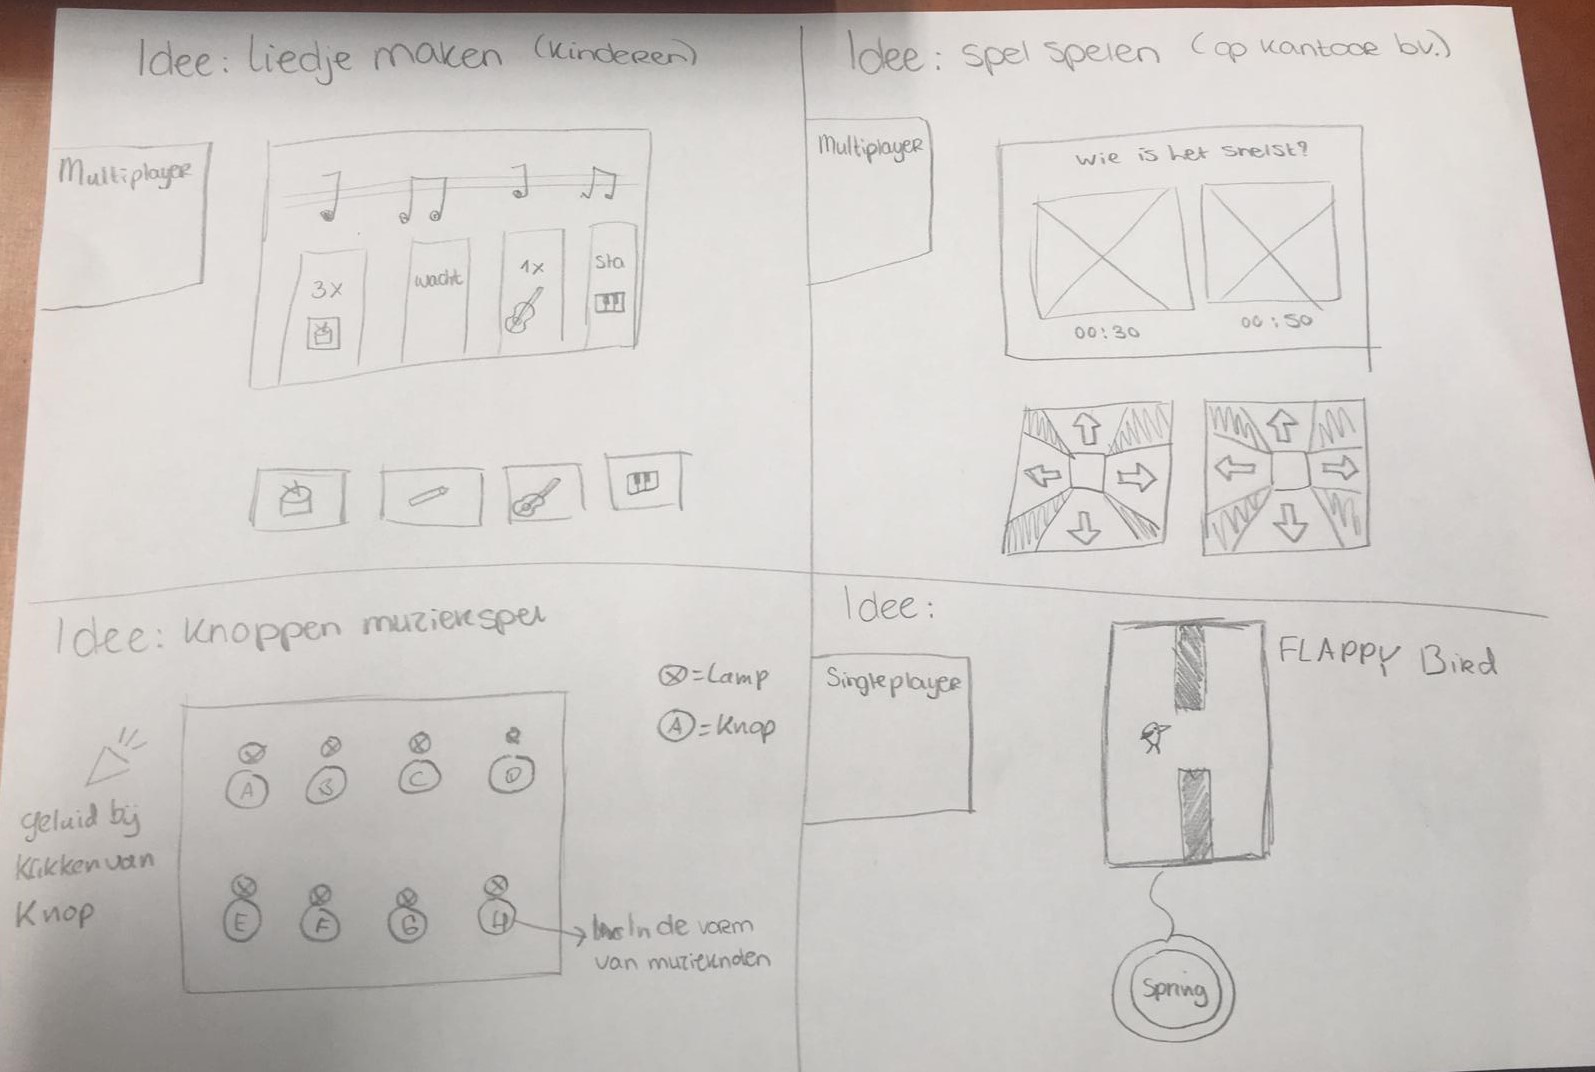 Idee: liedje maken (kinderen)
Multiplayer
3x
wacht
1x
sta
Idee: spel spelen (op kantoor bv.)
Multiplayer
wie is het snelst?
00:30
00:50
Idee: Knoppen muziekspel
⊗ = Lamp
Ⓐ = Knop
geluid bij
klikken van
Knop
A
B
C
D
E
F
G
H
In de vorm
van muzieknoten
Idee:
Singleplayer
FLAPPY Bird
Spring